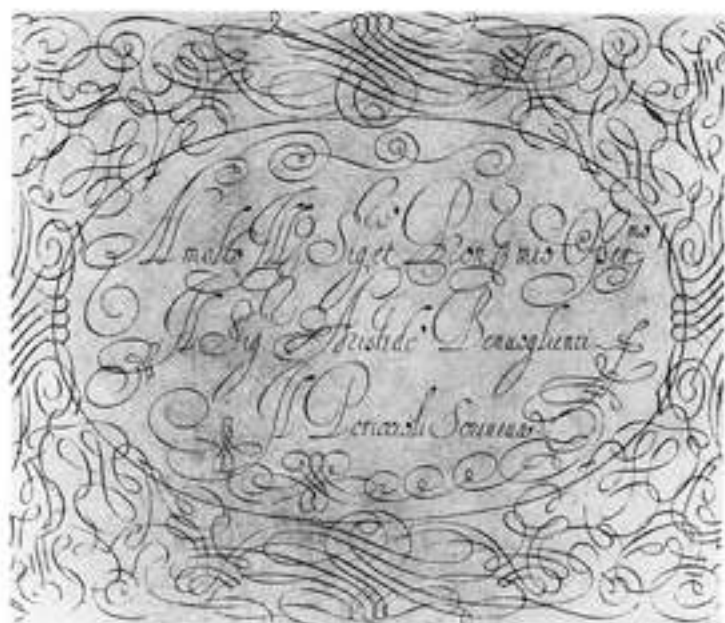 Al molto Ill Sig et Pron mio Osser mo
Il Sig Aristide Benuoglienti
Il Periccioli Scriueua